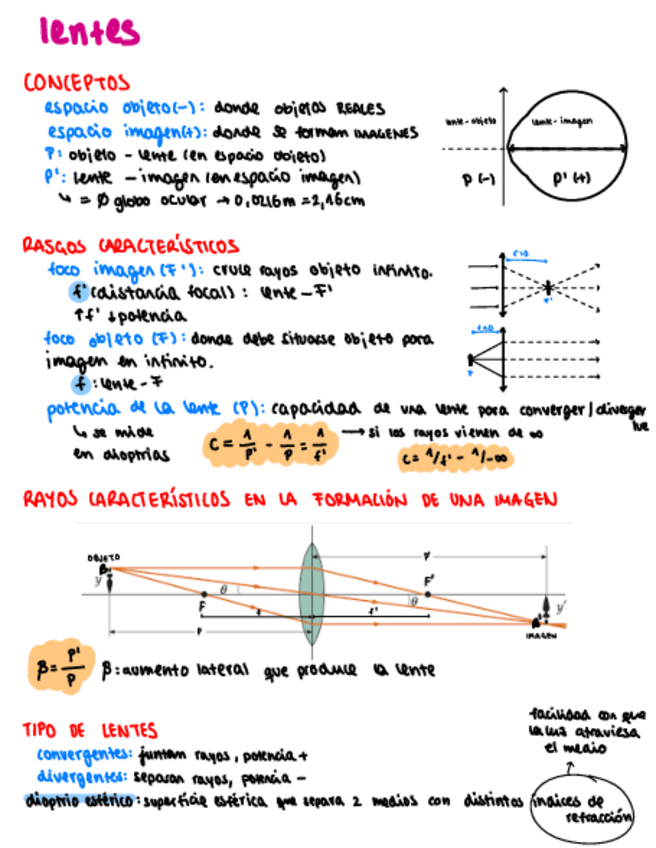 lentes
CONCEPTOS
espacio objeto(-): donde objetos REALES
espacio imagen(+): donde se forman IMAGENES
P: objeto - lente (en espacio objeto)
P': lente - imagen (en espacio imagen)
↳ = Ø globo ocular → 0,0216m = 2,16cm
lente - objeto
lente - imagen
P (-)
P' (+)
RASGOS CARACTERÍSTICOS
foco imagen (F'): cruce rayos objeto infinito.
f' (distancia focal): lente - F'
↑f' ↓potencia
foco objeto (F): donde debe situarse objeto para
imagen en infinito.
f: lente - F
potencia de la lente (P): capacidad de una lente para converger / diverger
luz
↳ se mide
en dioptrias
C = 1/P' - 1/P = 1/f'
→ si los rayos vienen de ∞
C = 1/f' - 1/-∞
RAYOS CARACTERÍSTICOS EN LA FORMACIÓN DE UNA IMAGEN
OBJETO
y
θ
F
F'
θ
y'
f
f'
P
IMAGEN
β = P'/P
β: aumento lateral que produce la lente
TIPO DE LENTES
convergentes: juntan rayos, potencia +
divergentes: separan rayos, potencia -
dioptrio esférico: superficie esférica que separa 2 medios con distintos índices de
refracción
facilidad con que
la luz atraviesa
el medio